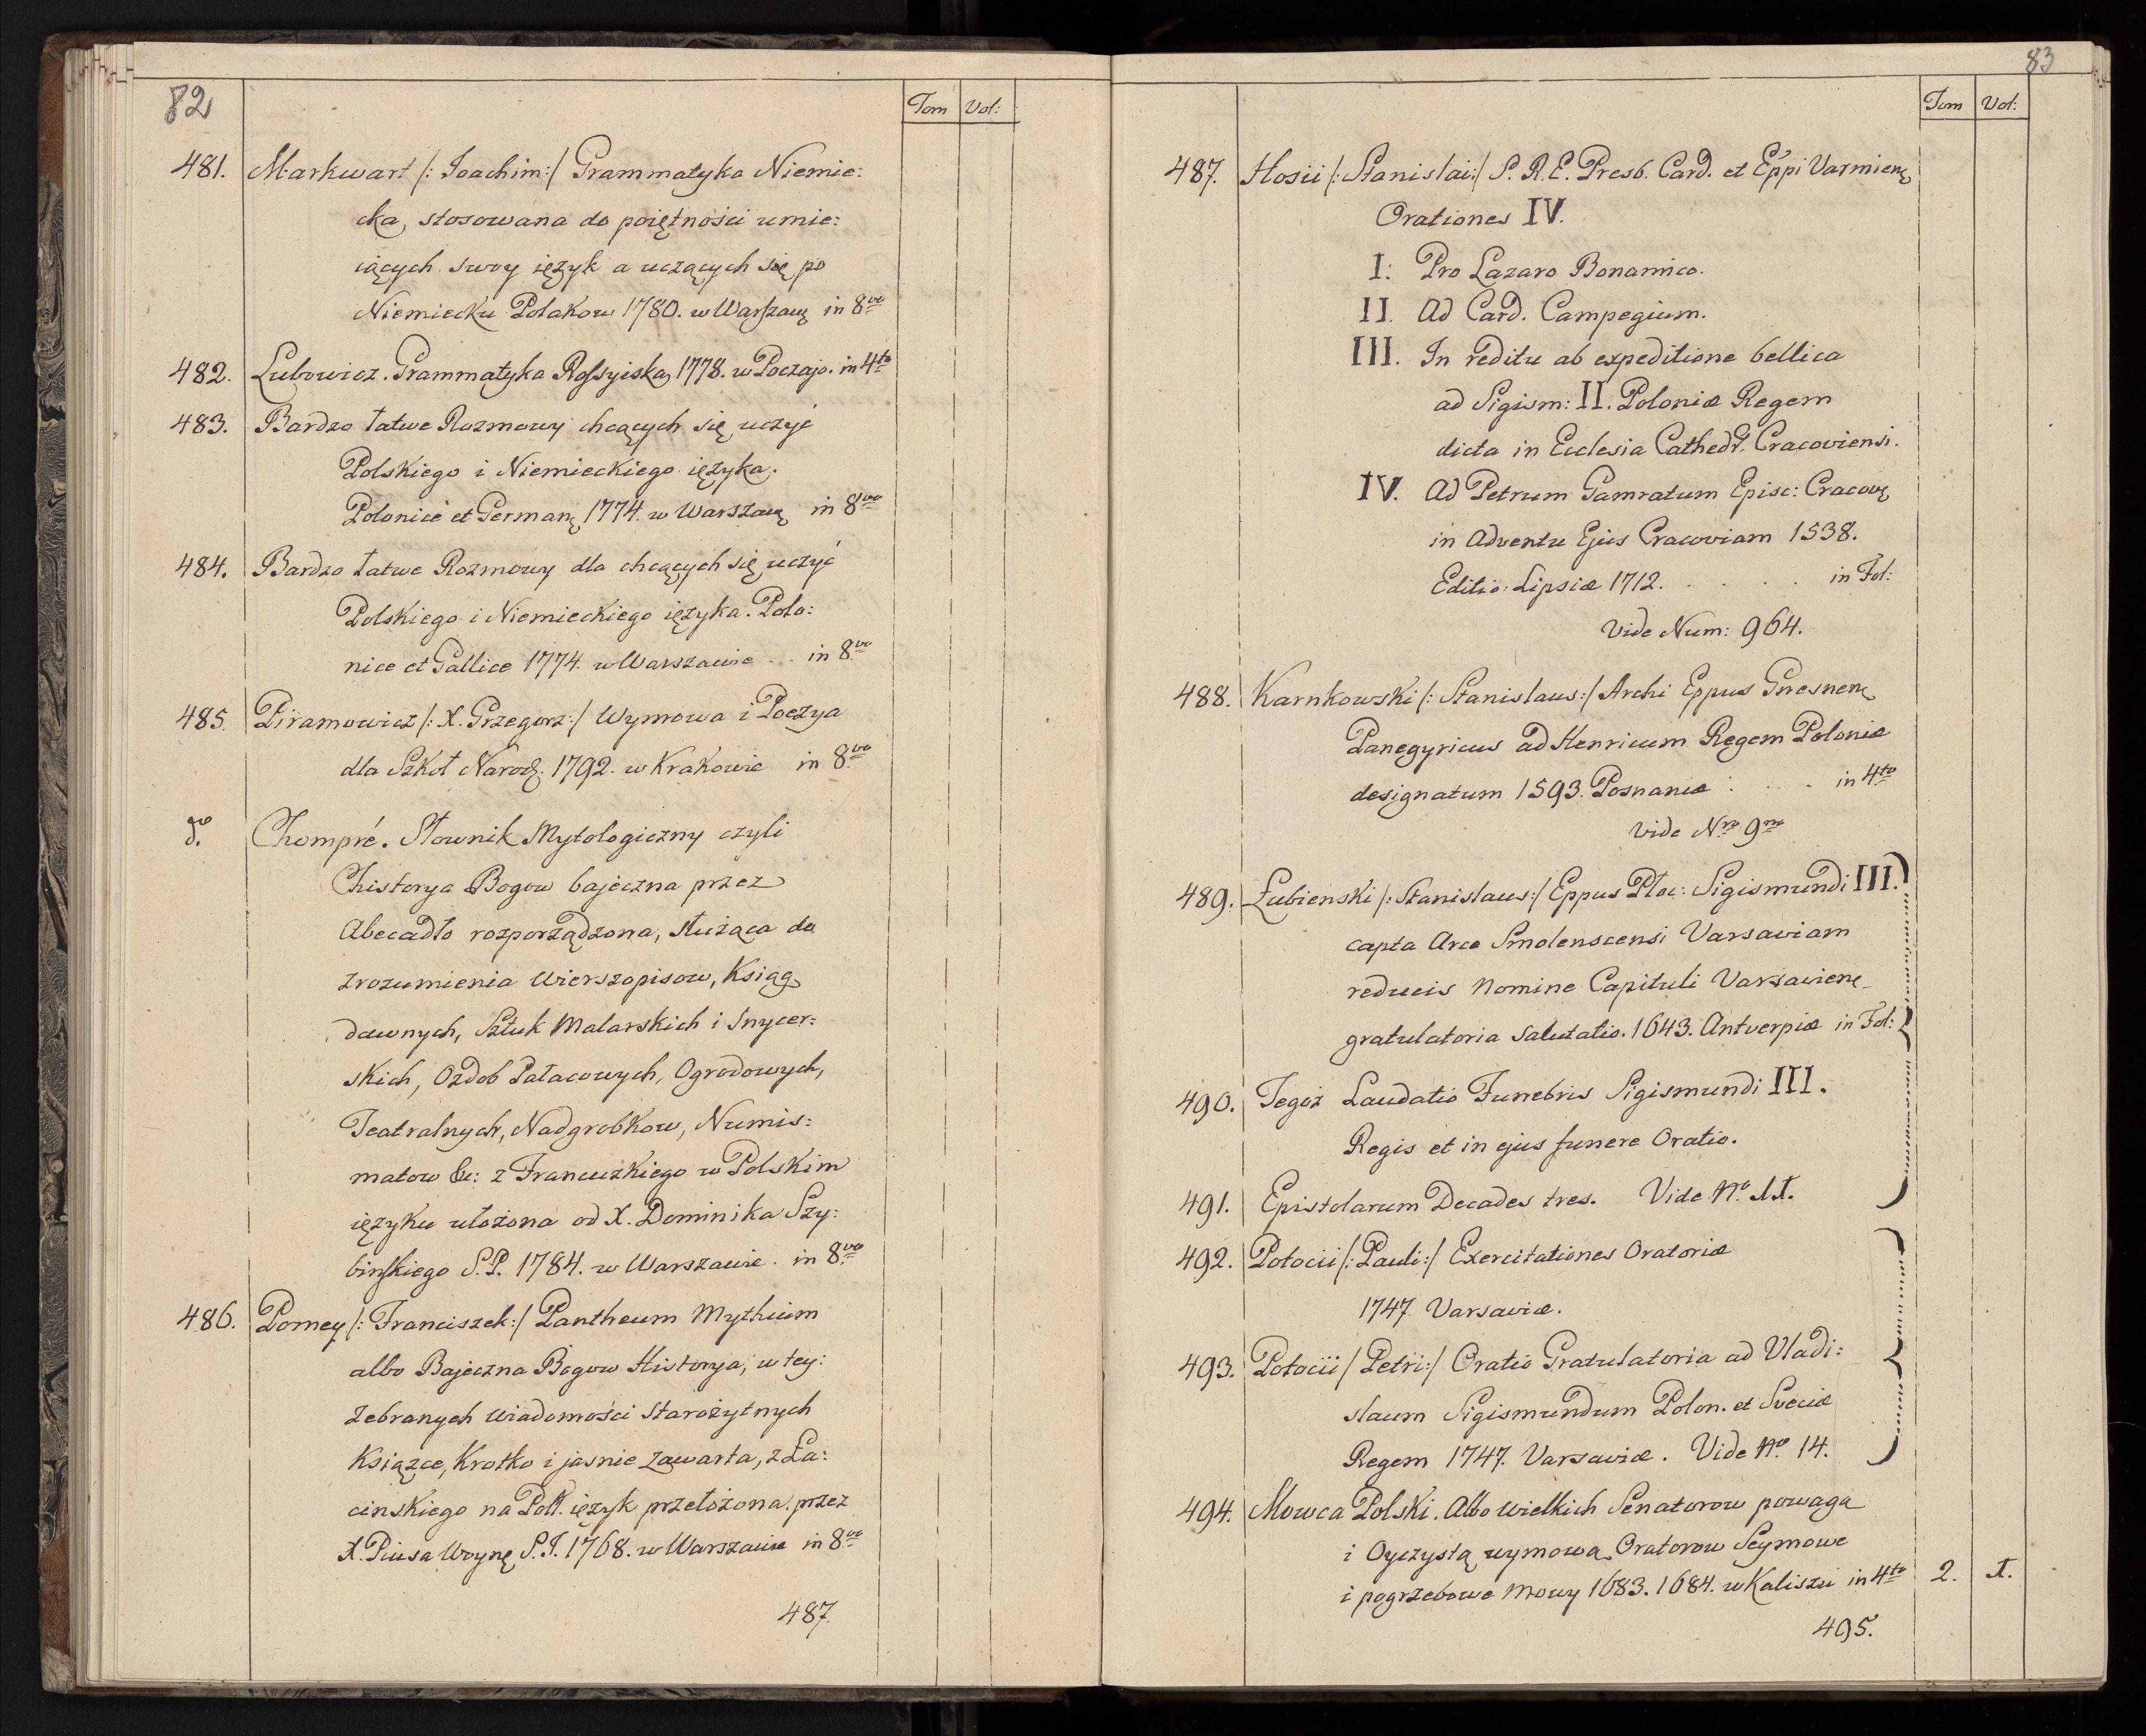 82
Tom Vol:
481. Markwart /: Ioachim:/ Grammatyka Niemie:
cka, stosowana do poiętności umie:
iących swoy ięzyk a uczących się po
Niemiecku Polakow 1780. w Warszawę in 8vo
482. Lubowicz. Grammatyka Rossyiska, 1778. w Poczajo. in 4to
483. Bardzo łatwe Rozmowy chcących się uczyć
Polskiego i Niemieckiego ięzyka.
Polonicè et Germanę 1774. w Warszawę in 8vo
484. Bardzo łatwe Rozmowy dla chcących się uczyć
Polskiego i Niemieckiego ięzyka. Polo:
nice et Gallice 1774. w Warszawie . . in 8vo
485. Piramowicz /: X. Grzegorz:/ Wymowa i Poezya
dla Szkoł Narod. 1792. w Krakowie in 8vo
do. Chompré. Słownik Mytologiczny czyli
Chistorya Bogow bajeczna przez
Abecadło rozporządzona, służąca do
zrozumienia Wierszopisow, Ksiąg
dawnych, Sztuk Malarskich i Snycer:
skich, Ozdob Pałacowych, Ogrodowych,
Teatralnych, Nadgrobkow, Numis:
matow &c: z Francuzkiego w Polskim
ięzyku ułożona od X. Dominika Szy:
binskiego S.P. 1784. w Warszawie. in 8vo
486. Pomey /: Franciszek:/ Pantheum Mythicum
albo Bajeczna Bogow Historya, w tey:
Zebranych Wiadomości Starożytnych
Książce, Krotko i jasnie zawarta, z Ła:
cinskiego na Pol. ięzyk przełożona. przez
X. Piusa Woynę S.P. 1768. w Warszawie in 8vo
487.
83
Tom Vol:
487. Hosii /: Stanislai:/ S. R. E. Presb. Card. et Eppi Varmienę
Orationes IV.
I. Pro Lazaro Bonamico.
II. Ad Card. Campegium.
III. In reditu ab expeditione bellica
ad Sigism: II. Poloniæ Regem
dicta in Ecclesia Cathedr. Cracoviensi.
IV. Ad Petrum Gamratum Episc: Cracovę
in Adventu Ejus Cracoviam 1538.
Editio: Lipsiæ 1712. . . . . in Fol:
Vide Num: 964.
488. Karnkowski /: Stanislaus:/ Archi Eppus Gnesnenę
Panegyricus ad Henricum Regem Poloniæ
designatum 1593. Posnaniæ . . . in 4to
Vide Nro 9no
489. Łubienski /: Stanislaus:/ Eppus Płoc: Sigismundi III.
capta Arce Smolenscensi Varsaviam
reducis Nomine Capituli Varsavienę
gratulatoria Salutatio. 1643. Antverpiæ in Fol:
490. Tegoż Laudatio Funebris Sigismundi III.
Regis et in ejus funere Oratio.
491. Epistolarum Decades tres. Vide No. 11.
492. Potocii /: Pauli:/ Exercitationes Oratoriæ
1747. Varsaviæ.
493. Potocii / Petri:/ Oratio Gratulatoria ad Vladi:
slaum Sigismundum Polon. et Sveciæ
Regem 1747. Varsaviæ. Vide No. 14.
494. Mowca Polski. Albo Wielkich Senatorow powaga
i Oyczystą wymową Oratorow Seymowe
i pogrzebowe Mowy 1683. 1684. w Kaliszu in 4to 2. 1.
495.